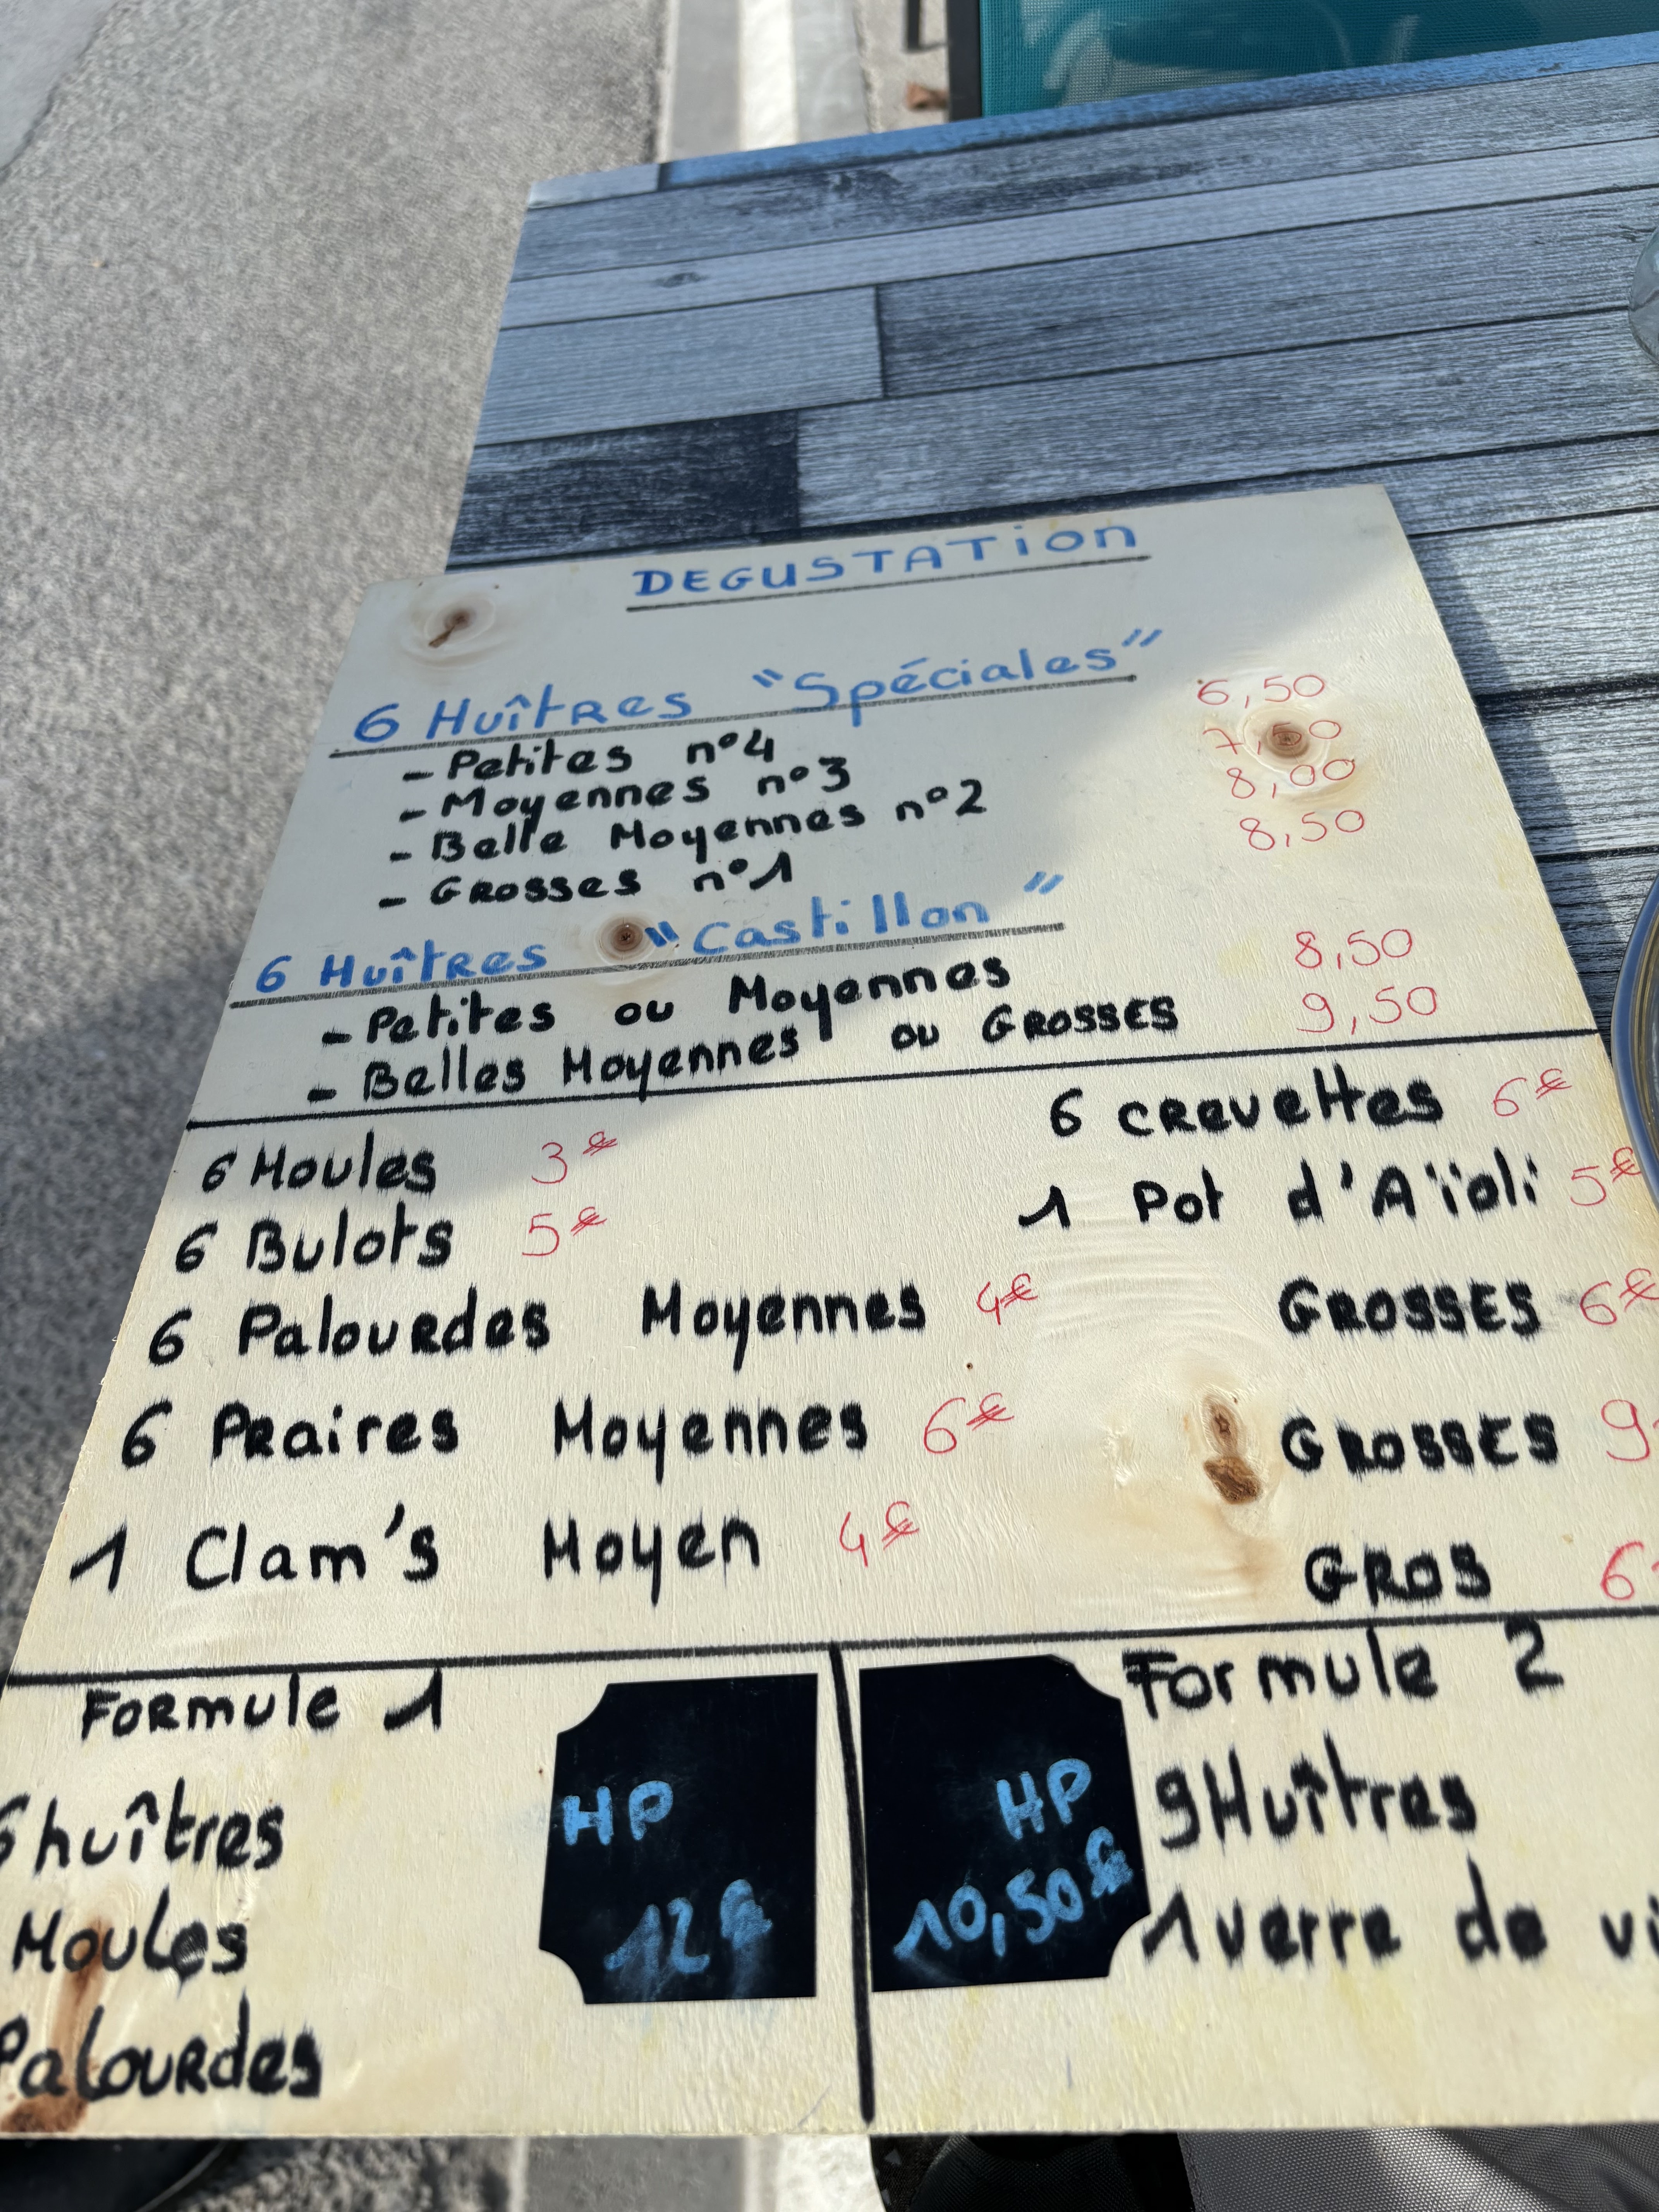 DEGUSTATiON
6 Huîtres "Spéciales"
- Petites n°4 6,50
- Moyennes n°3 7,50
- Belle Moyennes n°2 8,00
- GROSSES n°1 8,50
6 Huîtres "Castillon"
- Petites ou Moyennes 8,50
- Belles Moyennes ou GROSSES 9,50
6 Moules 3€ 6 crevettes 6€
6 Bulots 5€ 1 Pot d'Aïoli 5€
6 Palourdes Moyennes 4€ GROSSES 6€
6 Praires Moyennes 6€ GROSSES 9
1 Clam's Moyen 4€ GROS 6
Formule 1 Formule 2
6 huîtres HP HP 9 Huîtres
Moules 12€ 10,50€ 1 verre de
Palourdes